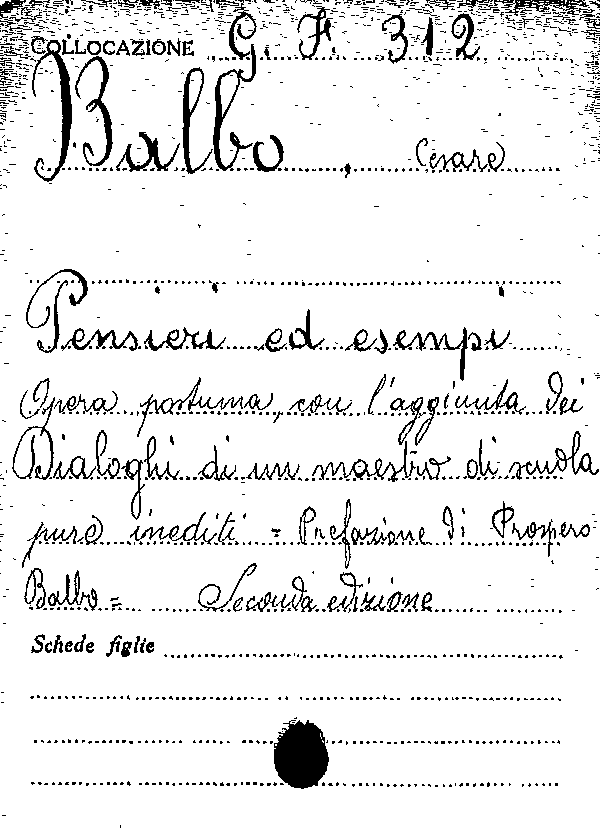 COLLOCAZIONE G. F. 312
Balbo, Cesare
Pensieri ed esempi
Opera postuma, con l'aggiunta dei
Dialoghi di un maestro di scuola
pure inediti = Prefazione di Prospero
Balbo = Seconda edizione
Schede figlie